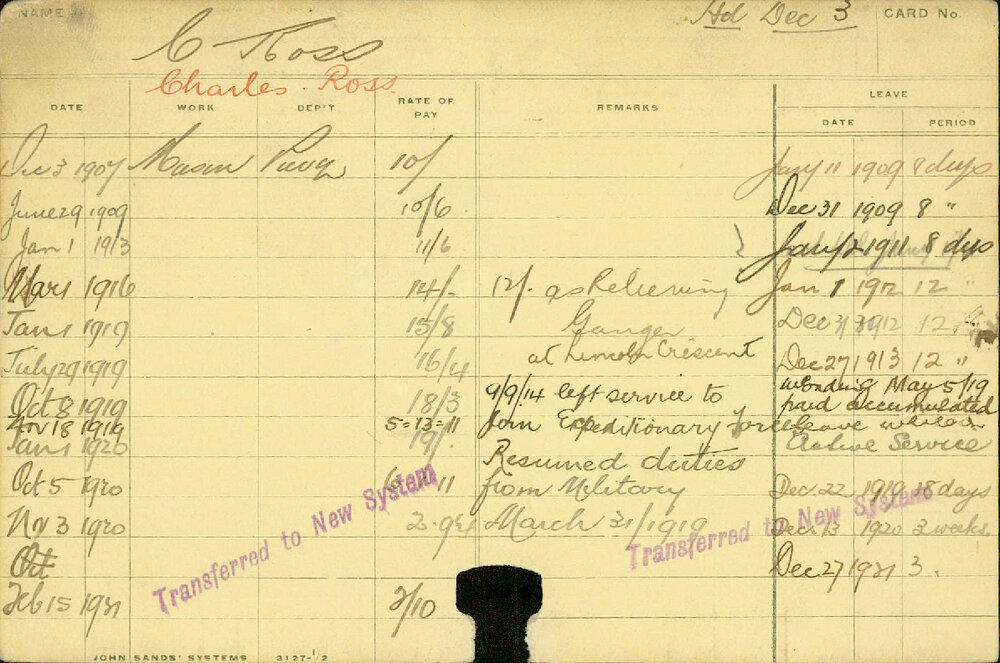 NAME
Hd Dec 3
CARD No.
C Ross
Charles Ross
DATE WORK DEP'T RATE OF PAY REMARKS LEAVE
DATE PERIOD
Dec 3 1907 Mason 10/ Jany 11 1909 8 days
June 29 1909 10/6 Dec 31 1909 8 "
Jan 1 1913 11/6 Jany 2 1911 8 dys
Mar 1 1916 14/- 12/. as Relieving Jan 1 1912 12 "
Jan 1 1919 15/8 Ganger Dec 1912 12
July 29 1919 16/4 at Lincoln Crescent Dec 27 1913 12 "
Oct 8 1919 18/3 9/9/14 left service to May 5/19
paid accumulated
Nov 18 1919 5=13=11 Join Expeditionary Force leave whilst on
Jan 1 1920 19/ Active Service
Resumed duties
Oct 5 1920 11 from Military Dec. 22 1919 18 days
Nv 3 1920 March 31/1919 Dec. 13 1920 3 weeks.
Oct Dec 27 1921 3.
Feb 15 1921 2/10
Transferred to New System
Transferred to New System
JOHN SANDS' SYSTEMS 3127-1/2